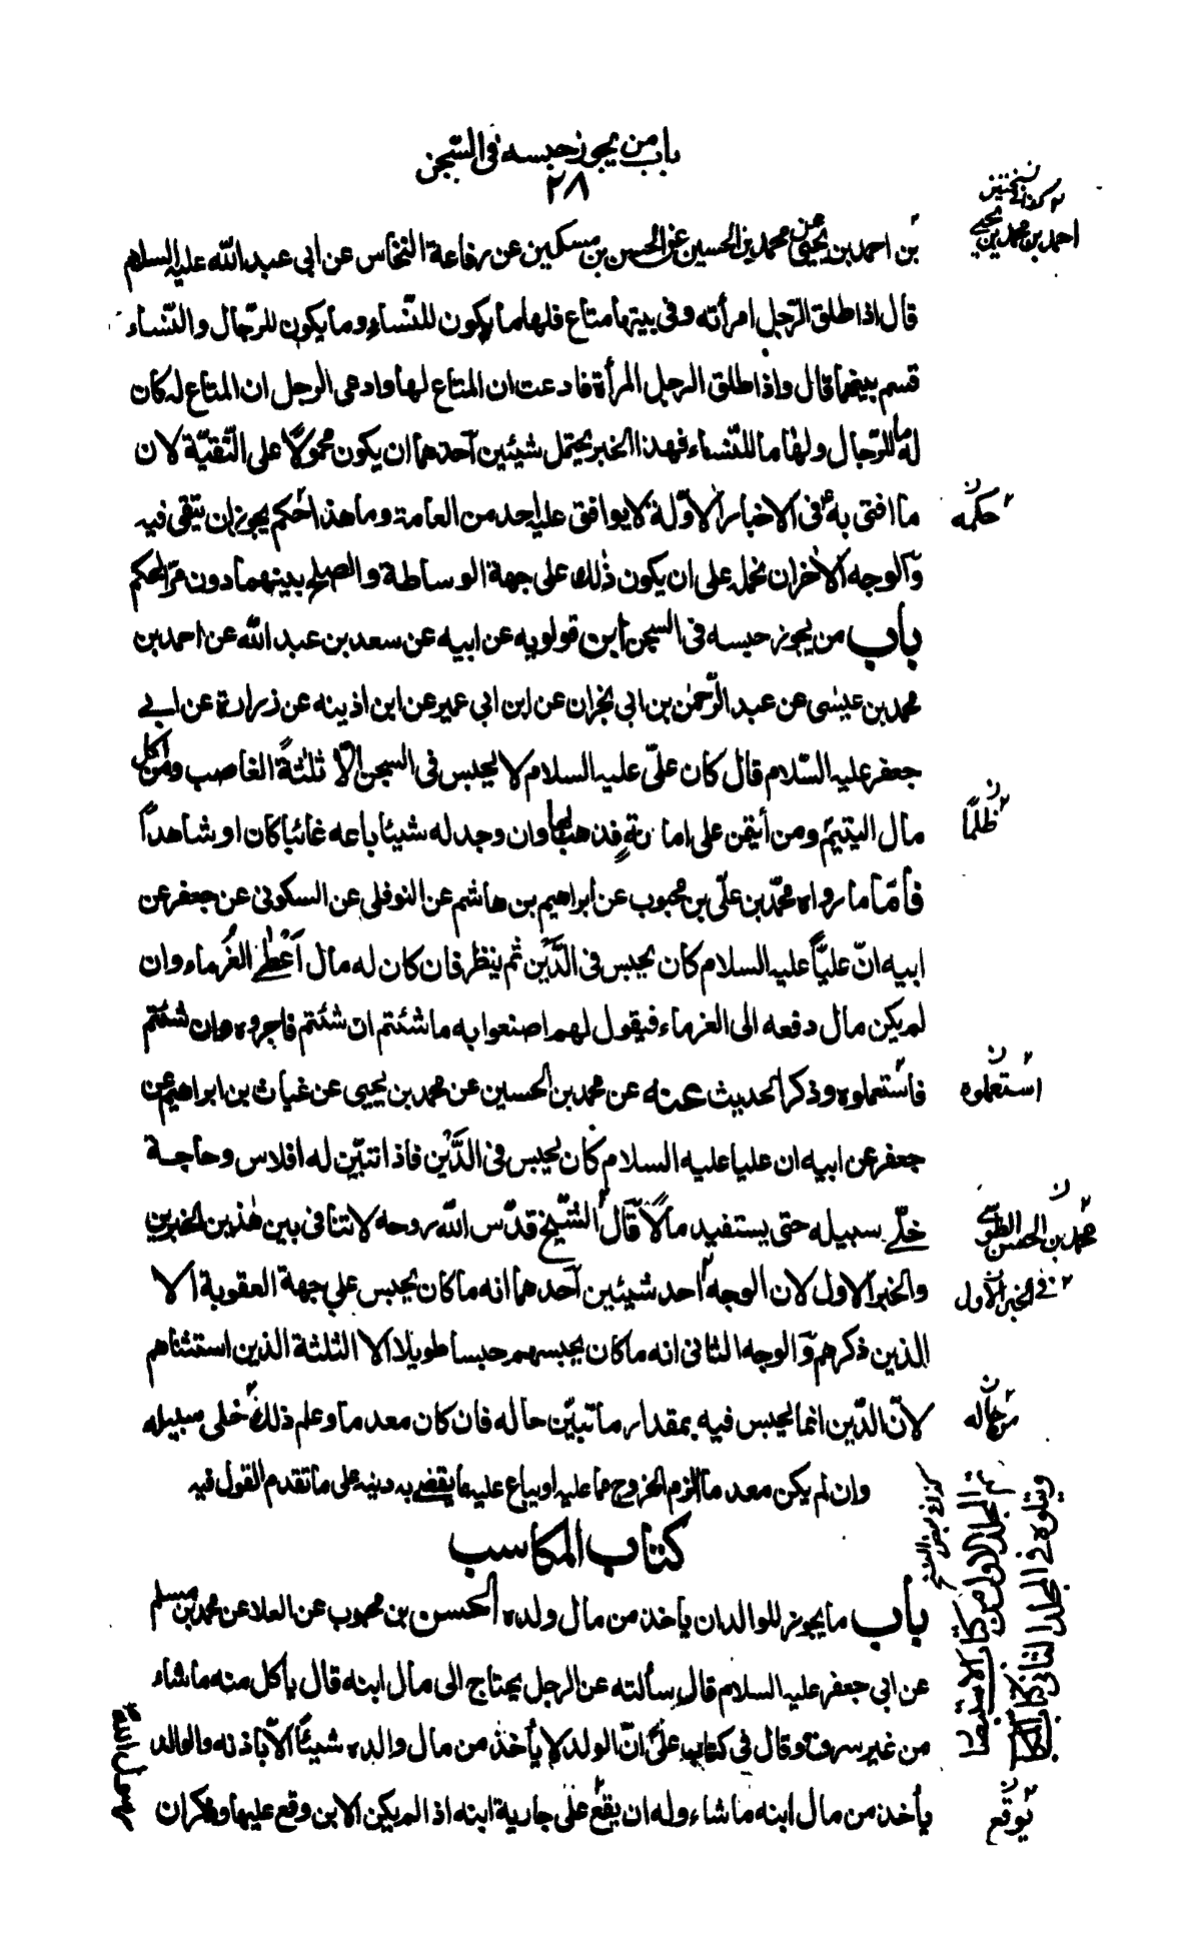 باب من يجوز حبسه فى السّجن
٢٨
بن احمد بن يحيى عن محمد بن الحسين عن الحسن بن مسكين عن رفاعة النخاس عن ابى عبد الله عليه السلام
قال اذا طلق الرّجل امرأته وفى بيتهما متاع فلها ما يكون للنّساء وما يكون للرّجال والنّساء
قسم بينهما قال واذا طلق الرجل المرأة فادعت ان المتاع لها وادعى الرجل ان المتاع له كان
له ما للرّجال ولها ما للنّساء فهذا الخبر يحتمل شيئين آحدهما ان يكون محمولًا على التّقيّة لان
ما افتى به فى الاخبار الاوّلة لا يوافق عليه احد من العامة وما هذا حكم يجوز ان يتقى فيه
وآلوجه الاخر ان نحمله على ان يكون ذلك على جهة الوساطة والصلح بينهما دون مرّ الحكم
باب من يجوز حبسه فى السجن ابن قولويه عن ابيه عن سعد بن عبد الله عن احمد بن
محمد بن عيسى عن عبد الرّحمن بن ابى نجران عن ابن ابى عمير عن ابن اذينه عن زرارة عن ابى
جعفر عليه السّلام قال كان علىّ عليه السلام لا يحبس فى السجن الّا ثلثةً الغاصب ومن اكل
مال اليتيم ومن أتيمن على امانةٍ فذهب بها وان وجد له شيئا باعه غائبا كان او شاهداً
فامّا ما رواه محمّد بن علىّ بن محبوب عن ابراهيم بن هاشم عن النوفلى عن السكونى عن جعفر عن
ابيه انّ عليّاً عليه السلام كان يحبس فى الدَّين ثم ينظر فان كان له مال اَعْطى الغُرماء وان
لم يكن مال دفعه الى الغرماء فيقول لهم اصنعوا به ما شئتم ان شئتم فاجروه وان شئتم
فاستعملوه وذكر الحديث عنه عن محمد بن الحسين عن محمد بن يحيى عن غياث بن ابراهيم عن
جعفر عن ابيه ان عليا عليه السلام كان يحبس فى الدَّين فاذا تبيّن له افلاس وحاجة
خلّى سبيله حتى يستفيد مالًا قال الشيخ قدّس الله روحه لا تنافى بين هذين الخبرين
والخبر الاول لان الوجه احد شيئين آحدهما انه ما كان يحبس على جهة العقوبة الا
الذين ذكرهم وآلوجه الثانى انه ما كان يحبسهم حبسا طويلا الا الثلثة الذين استثناهم
لانّ الدّين انما يحبس فيه بمقدار ما تبيّن حاله فان كان معدما وعلم ذلك خلى سبيله
وان لم يكن معدما الزم الخروج مما عليه او يباع عليه ما يقضى به دينه على ما تقدم القول فيه
كتاب المكاسب
باب ما يجوز للوالد ان ياخذ من مال ولده الحسن بن محبوب عن العلا عن محمد بن مسلم
عن ابى جعفر عليه السلام قال سألته عن الرجل يحتاج الى مال ابنه قال يأكل منه ما شاء
من غير سرف وقال فى كتاب علىّ انّ الولد لا يأخذ من مال والده شيئًا الّا باذنه والوالد
يأخذ من مال ابنه ما شاء وله ان يقع على جارية ابنه اذا لم يكن الابن وقع عليها وذكر ان
رسول الله
كذا فى نسختين
احمد بن محمد بن يحيى
حكمه
ظلمًا
استعملوه
محمد بن الحسن الطوسى
فى الخبر الاول
من حاله
كذا فى بعض النسخ
تم المجلد الاول من كتاب الاستبصار
ويتلوه فى المجلد الثانى كتاب المكا
يوقع